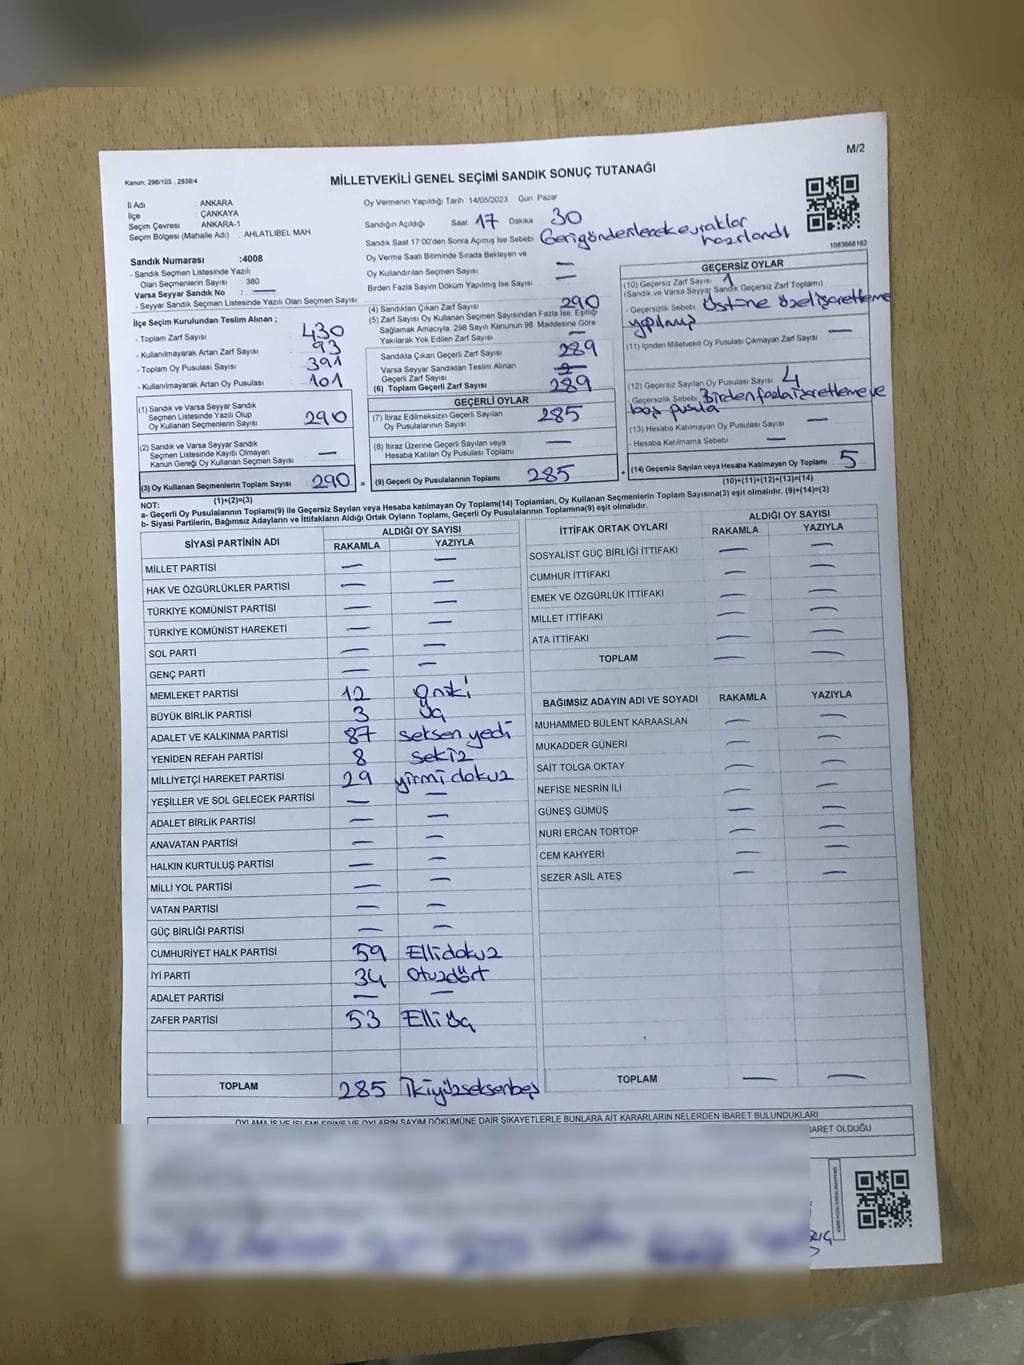 M/2
Kanun: 298/105 , 2839/4
MİLLETVEKİLİ GENEL SEÇİMİ SANDIK SONUÇ TUTANAĞI
İl Adı ANKARA
İlçe ÇANKAYA
Seçim Çevresi ANKARA-1
Seçim Bölgesi (Mahalle Adı) : AHLATLIBEL MAH
Sandık Numarası :4008
- Sandık Seçmen Listesinde Yazılı
Olan Seçmenlerin Sayısı : 380
Varsa Seyyar Sandık No : —
- Seyyar Sandık Seçmen Listesinde Yazılı Olan Seçmen Sayısı
Oy Vermenin Yapıldığı Tarih 14/05/2023 Gün: Pazar
Sandığın Açıldığı Saat 17 Dakika 30
Sandık Saat 17:00'den Sonra Açımış İse Sebebi Geri gönderilecek evraklar
hazırlandı
Oy Verme Saati Bitiminde Sırada Bekleyen ve
Oy Kullandırılan Seçmen Sayısı —
Birden Fazla Sayım Döküm Yapılmış İse Sayısı —
1083668182
İlçe Seçim Kurulundan Teslim Alınan ;
- Toplam Zarf Sayısı 430
- Kullanılmayarak Artan Zarf Sayısı 93
- Toplam Oy Pusulası Sayısı 391
- Kullanılmayarak Artan Oy Pusulası 101
(1) Sandık ve Varsa Seyyar Sandık
Seçmen Listesinde Yazılı Olup
Oy Kullanan Seçmenlerin Sayısı 290
(2) Sandık ve Varsa Seyyar Sandık
Seçmen Listesinde Kayıtlı Olmayan
Kanun Gereği Oy Kullanan Seçmen Sayısı —
(3) Oy Kullanan Seçmenlerin Toplam Sayısı 290 =
(1)+(2)=(3)
(4) Sandıktan Çıkan Zarf Sayısı 290
(5) Zarf Sayısı Oy Kullanan Seçmen Sayısından Fazla İse, Eşitliği
Sağlamak Amacıyla, 298 Sayılı Kanunun 98. Maddesine Göre
Yakılarak Yok Edilen Zarf Sayısı —
Sandıkta Çıkan Geçerli Zarf Sayısı 289
Varsa Seyyar Sandıktan Teslim Alınan
Geçerli Zarf Sayısı
(6) Toplam Geçerli Zarf Sayısı 289
GEÇERLİ OYLAR
(7) İtiraz Edilmeksizin Geçerli Sayılan
Oy Pusulalarının Sayısı 285
(8) İtiraz Üzerine Geçerli Sayılan veya
Hesaba Katılan Oy Pusulası Toplamı —
(9) Geçerli Oy Pusulalarının Toplamı 285 +
GEÇERSİZ OYLAR
(10) Geçersiz Zarf Sayısı 1
(Sandık ve Varsa Seyyar Sandık Geçersiz Zarf Toplamı)
- Geçersizlik Sebebi : Üstüne özel işaretleme
yapılmış
(11) İçinden Milletvekili Oy Pusulası Çıkmayan Zarf Sayısı —
(12) Geçersiz Sayılan Oy Pusulası Sayısı 4
- Geçersizlik Sebebi : Birden fazla işaretleme ve
boş pusula
(13) Hesaba Katılmayan Oy Pusulası Sayısı —
- Hesaba Katılmama Sebebi —
(14) Geçersiz Sayılan veya Hesaba Katılmayan Oy Toplamı 5
(10)+(11)+(12)+(13)=(14)
NOT:
a- Geçerli Oy Pusulalarının Toplamı(9) ile Geçersiz Sayılan veya Hesaba Katılmayan Oy Toplamı(14) Toplamları, Oy Kullanan Seçmenlerin Toplam Sayısına(3) eşit olmalıdır. (9)+(14)=(3)
b- Siyasi Partilerin, Bağımsız Adayların ve İttifakların Aldığı Ortak Oyların Toplamı, Geçerli Oy Pusulalarının Toplamına(9) eşit olmalıdır.
SİYASİ PARTİNİN ADI ALDIĞI OY SAYISI
RAKAMLA YAZIYLA
MİLLET PARTİSİ — —
HAK VE ÖZGÜRLÜKLER PARTİSİ — —
TÜRKİYE KOMÜNİST PARTİSİ — —
TÜRKİYE KOMÜNİST HAREKETİ — —
SOL PARTİ — —
GENÇ PARTİ — —
MEMLEKET PARTİSİ 12 Oniki
BÜYÜK BİRLİK PARTİSİ 3 Üç
ADALET VE KALKINMA PARTİSİ 87 seksen yedi
YENİDEN REFAH PARTİSİ 8 sekiz
MİLLİYETÇİ HAREKET PARTİSİ 29 yirmi dokuz
YEŞİLLER VE SOL GELECEK PARTİSİ — —
ADALET BİRLİK PARTİSİ — —
ANAVATAN PARTİSİ — —
HALKIN KURTULUŞ PARTİSİ — —
MİLLİ YOL PARTİSİ — —
VATAN PARTİSİ — —
GÜÇ BİRLİĞİ PARTİSİ — —
CUMHURİYET HALK PARTİSİ 59 Ellidokuz
İYİ PARTİ 34 Otuzdört
ADALET PARTİSİ — —
ZAFER PARTİSİ 53 Elli üç
TOPLAM 285 İkiyüzseksenbeş
İTTİFAK ORTAK OYLARI ALDIĞI OY SAYISI
RAKAMLA YAZIYLA
SOSYALİST GÜÇ BİRLİĞİ İTTİFAKI — —
CUMHUR İTTİFAKI — —
EMEK VE ÖZGÜRLÜK İTTİFAKI — —
MİLLET İTTİFAKI — —
ATA İTTİFAKI — —
TOPLAM — —
BAĞIMSIZ ADAYIN ADI VE SOYADI RAKAMLA YAZIYLA
MUHAMMED BÜLENT KARAASLAN — —
MUKADDER GÜNERİ — —
SAİT TOLGA OKTAY — —
NEFİSE NESRİN İLİ — —
GÜNEŞ GÜMÜŞ — —
NURİ ERCAN TORTOP — —
CEM KAHYERİ — —
SEZER ASIL ATEŞ — —
TOPLAM — —
OYLAMA İŞ VE İŞLEMLERİNE VE OYLARIN SAYIM DÖKÜMÜNE DAİR ŞİKAYETLERLE BUNLARA AİT KARARLARIN NELERDEN İBARET BULUNDUKLARI
BARET OLDUĞU